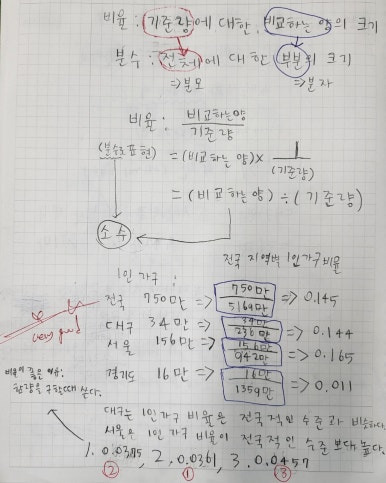 비율 : 기준량에 대한 비교하는 양의 크기
분수 : 전체에 대한 부분의 크기
⇒분모 ⇒분자
비율 : 비교하는양
기준량
(분수로표현) = (비교하는 양) × 1
(기준량)
= (비교하는 양) ÷ (기준량)
소수
전국 지역별 1인 가구 비율
1인 가구 :
전국 750만 => 750만/5169만 => 0.145
대구 34만 => 34만/236만 => 0.144
서울 156만 => 156만/942만 => 0.165
경기도 16만 => 16만/1359만 => 0.011
very good
비율이 좋은 이유:
함량을 구할때 쓴다.
대구는 1인가구 비율은 전국적인 수준과 비슷하다.
서울은 1인 가구 비율이 전국적인 수준 보다 높다.
1. 0.0375, 2, 0.0361, 3. 0.0457
② ① ③